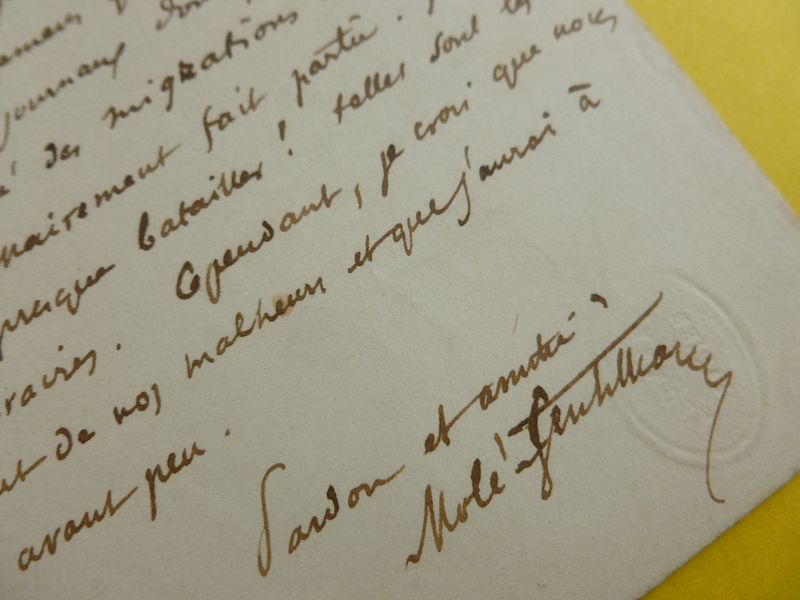 journaux
é des migrations
nairement fait partie.
presque batailler ! telles sont les
Cependant, je crois que nous
de nos malheurs et que j'aurai à
avant peu.
Pardon et amitié
Molé-Gentilhomme